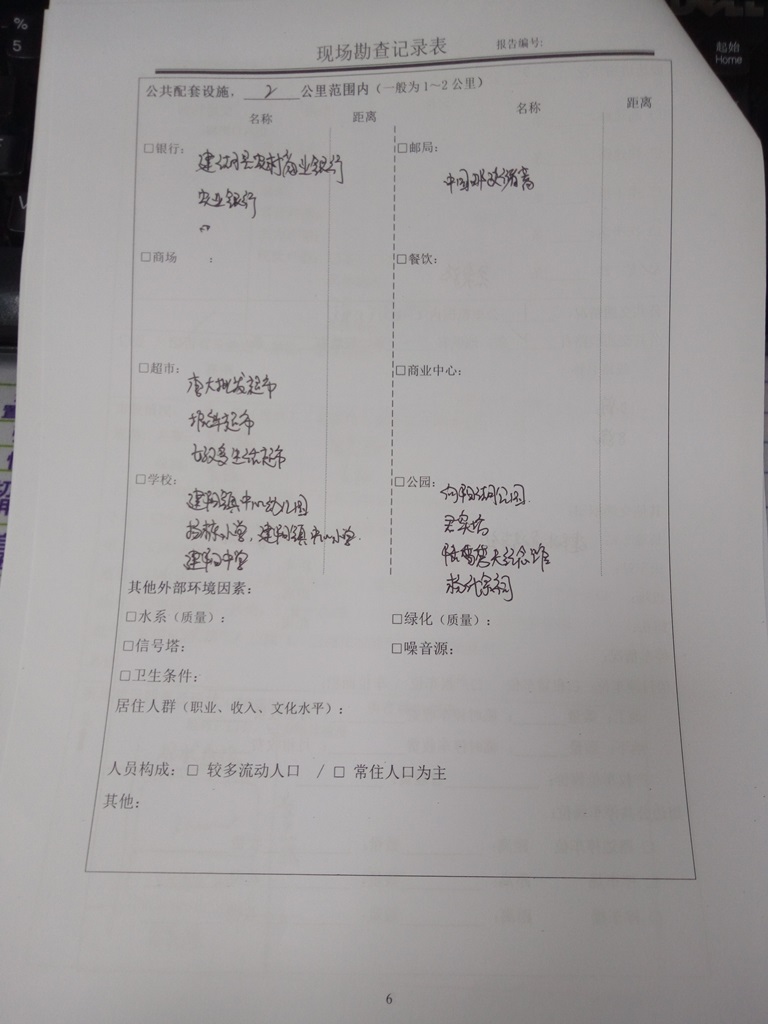 现场勘查记录表 报告编号:
公共配套设施，2公里范围内（一般为1～2公里）
名称 距离 名称 距离
□银行：建湖县农村商业银行 □邮局：
农业银行 中国邮政储蓄
□商场 ： □餐饮：
□超市： □商业中心：
批发超市
超市
生活超市
□学校： □公园：
建阳镇中心幼儿园
小学，建阳镇中心小学
建阳中学
其他外部环境因素：
□水系（质量）： □绿化（质量）：
□信号塔： □噪音源：
□卫生条件：
居住人群（职业、收入、文化水平）：
人员构成：□ 较多流动人口 / □ 常住人口为主
其他：
6
%
5
起始
Home